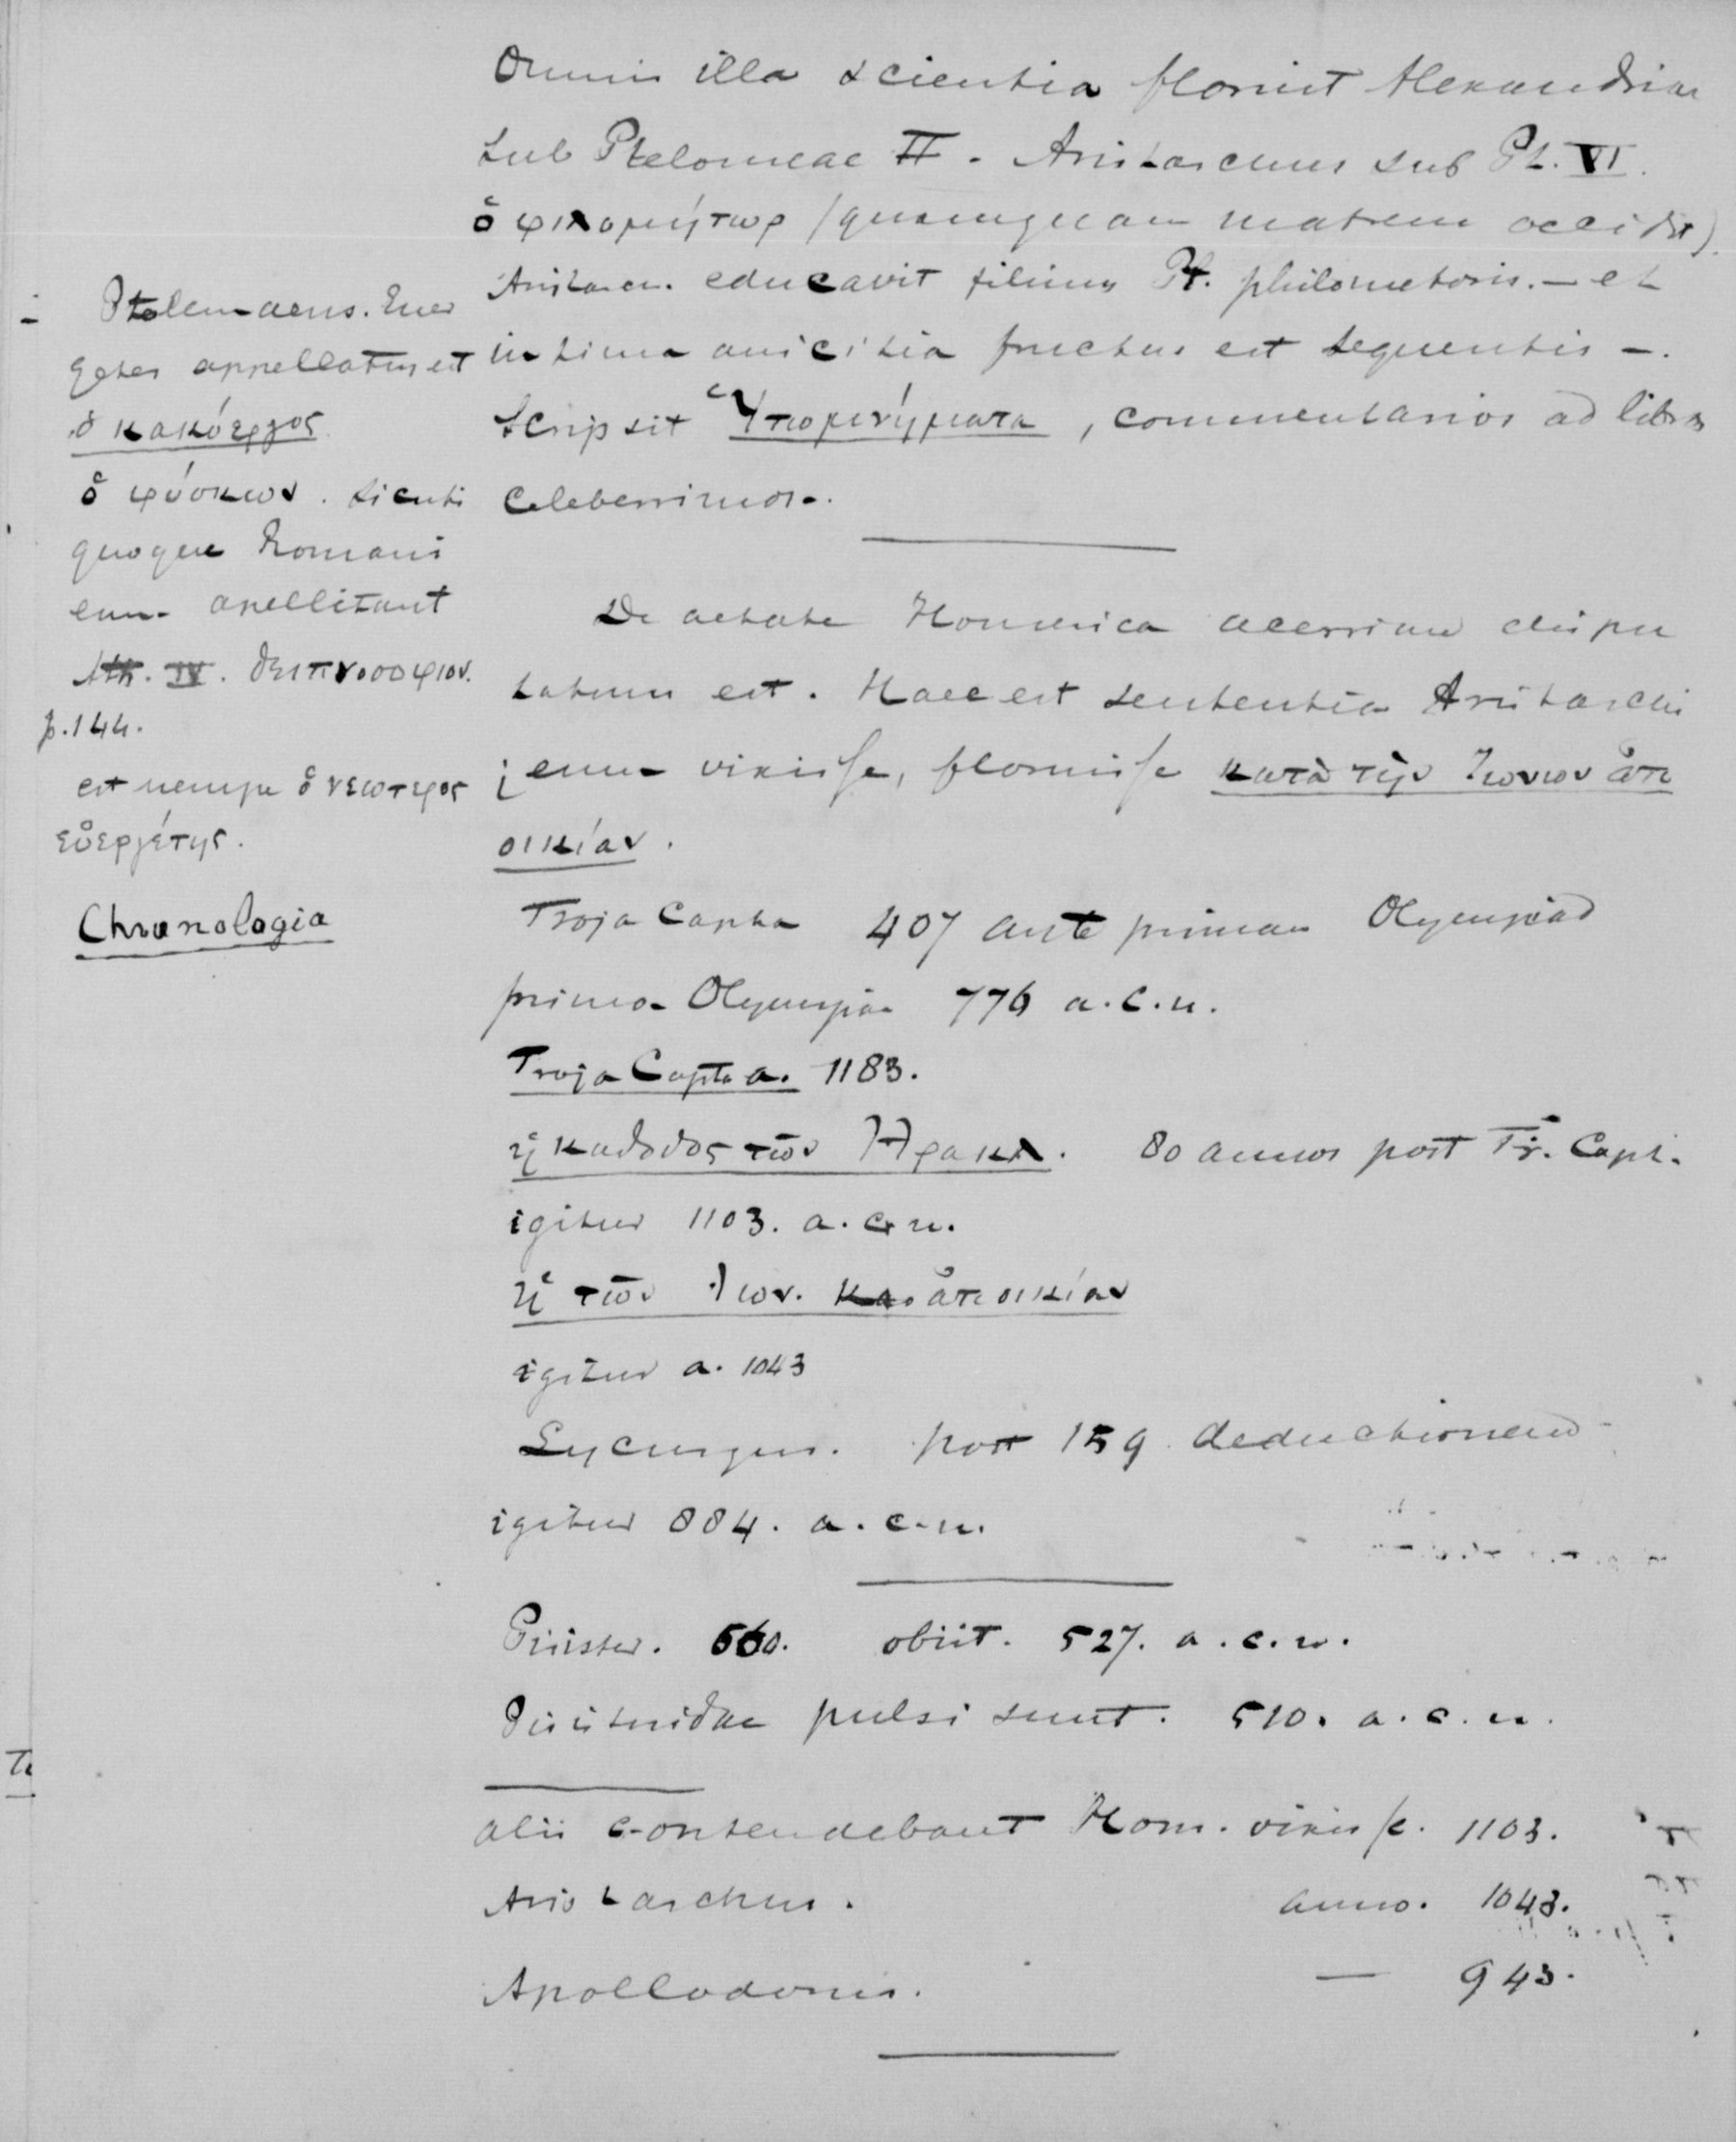 Omnis illa scientia floruit Alexandriae
sub Ptelomeae II. Aristarchus sub Pt. VI.
ὁ φιλομήτωρ (quamquam matrem occidit).
Aristarch. educavit filium Pt. philometoris. — et
intima amicitia fructus est sequentis —.
Scripsit Ὑπομνήματα, commentarios ad libros
celeberrimos.
- Ptolemaeus. Euer
getes appellatus est
ὁ κακόεργος
ὁ φύσκων. sicuti
quoque Romani
eum apellitant
Ath. IV. δειπνοσοφιον.
p. 144.
est nempe ὁ νεωτερος
εὐεργέτης.
De aetate Homerica acerrime dispu
tatum est. Haec est sententia Aristarchi
eum vixisse, floruisse κατὰ τὴν Ἰωνιον ἀπ
οικίαν.
Chronologia
Troja Capta 407 ante primam Olympiad
prima Olympia 776 a.C.n.
Troja Capta a. 1183.
ἡ καθοδος τῶν Ἡρακλ. 80 annos post Tr. Capt.
igitur 1103. a.C.n.
ἡ τῶν Ἰων. ἀποικίαν
igitur a. 1043
Lycurgus. post 159 deductionem
igitur 884. a.c.n.
Pisistr. 560. obiit. 527. a.c.n.
Pisistridae pulsi sunt. 510. a.c.n.
alii contendebant Hom. vixisse. 1103.
Aristarchus. anno. 1043.
Apollodorus. — 943.